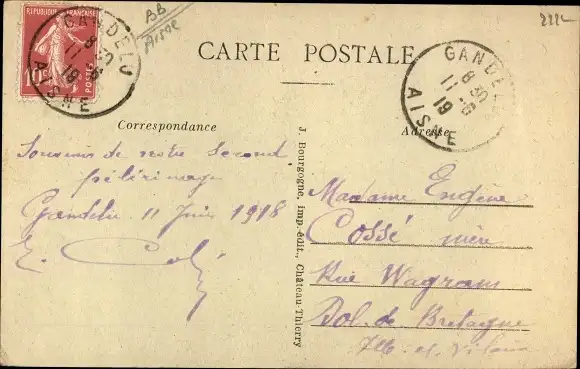 RÉPUBLIQUE FRANÇAISE
10c
POSTES
GANDELU
8 30
11 -6
19
AISNE
BB
Aisne
222
CARTE POSTALE
GANDELU
8 30
11 -6
19
AISNE
Correspondance
Adresse
Souvenir de notre second
pélérinage
Gandelu 11 Juin 1918
E.
J. Bourgogne, imp.-édit., Château-Thierry
Madame Eugène
Cossé mère
Rue Wagram
Dol. de Bretagne
Ille. et. Vilaine